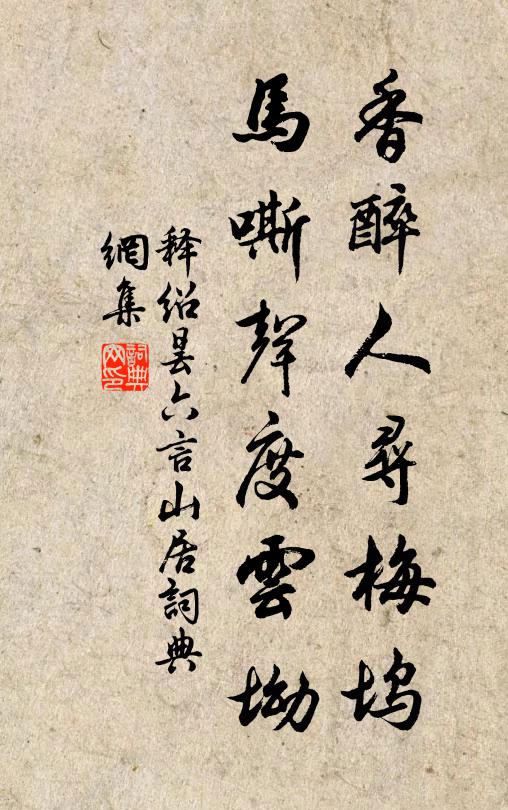 香醉人尋梅塢
馬嘶聲度雲坳
释绍昙六言山居詞典
網集
詞典
网印